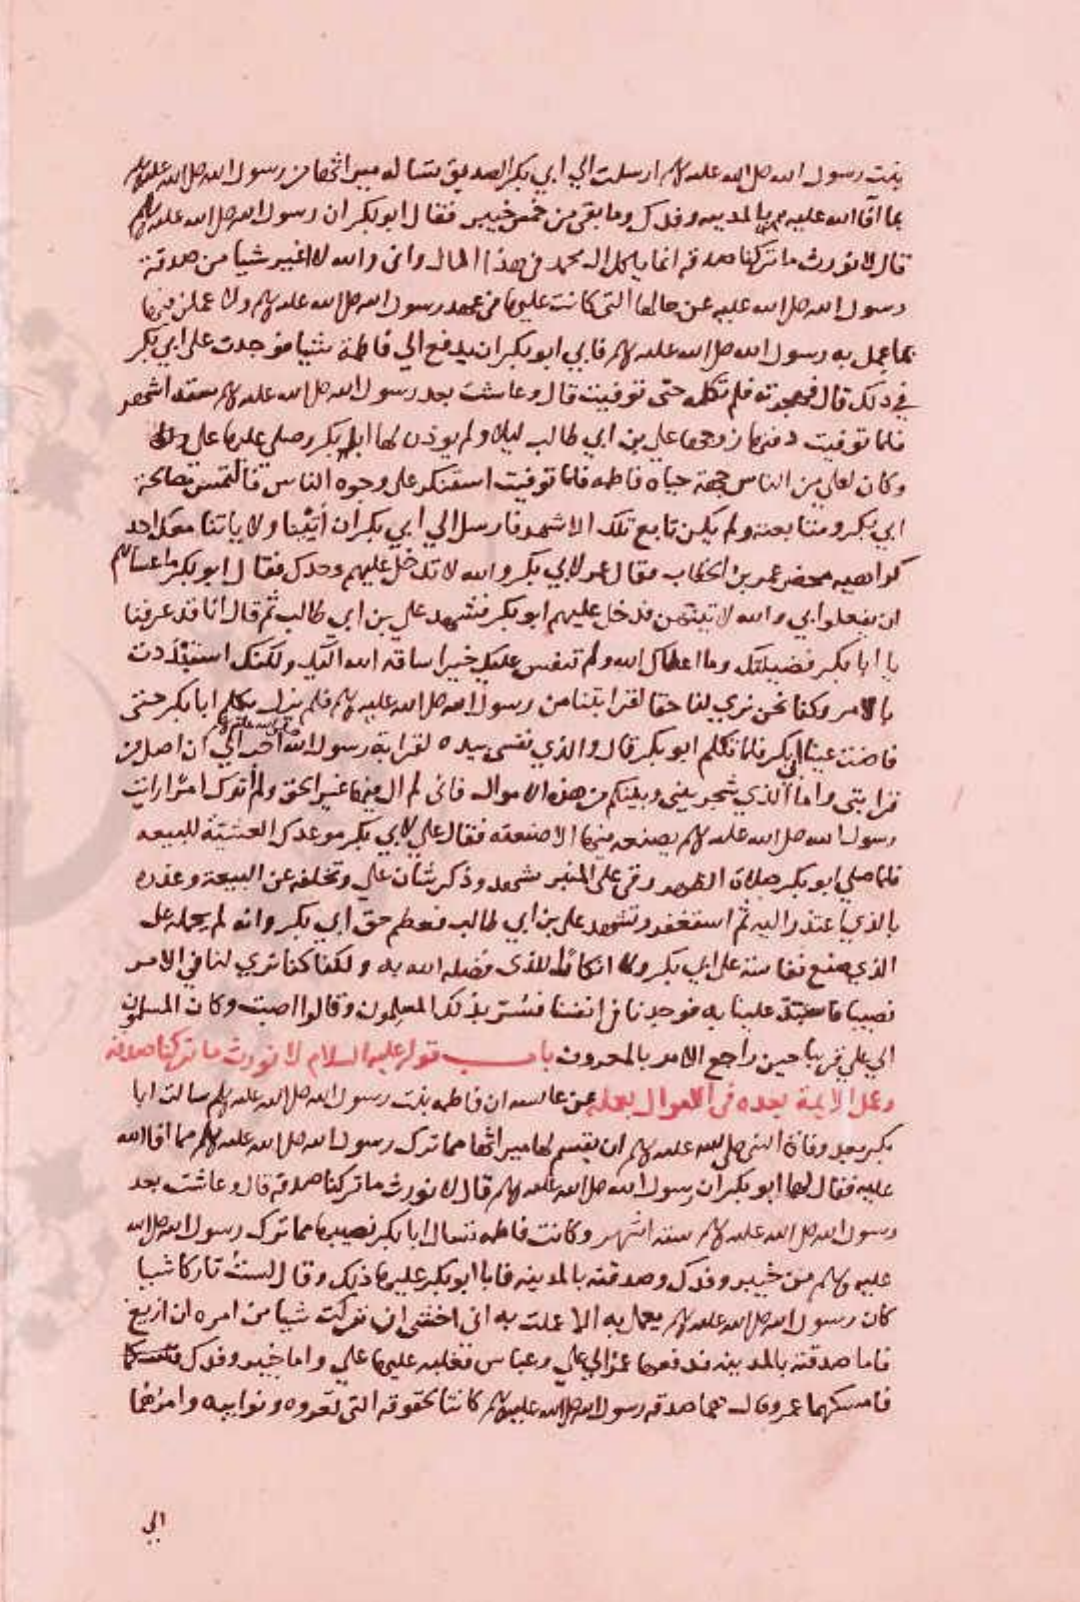 بنت رسول الله صلى الله عليه وسلم ارسلت الي ابي بكر الصديق تساله ميراثها من رسول الله صلى الله عليه وسلم
مما آفا الله عليه بالمدينه وفدك وما بقي من خمس خيبر فقال ابو بكر ان رسول الله صلى الله عليه وسلم
قال لا نورث ما تركنا صدقه انما ياكل ال محمد في هذا المال واني والله لا اغير شيا من صدقة
رسول الله صلى الله عليه عن حالها التي كانت عليها في عهد رسول الله صلى الله عليه وسلم ولا عملن فيها
بما عمل به رسول الله صلى الله عليه وسلم فابي ابو بكر ان يدفع الي فاطمة شيا فوجدت على ابي بكر
في ذلك قال فهجرته فلم تكلمه حتى توفيت قال وعاشت بعد رسول الله صلى الله عليه وسلم سته اشهر
فلما توفيت دفنها زوجها علي بن ابي طالب ليلا ولم يوذن لها ابا بكر وصلى عليها علي
وكان لعلي من الناس جهة حياة فاطمه فلما توفيت استنكر علي وجوه الناس فالتمس مصالحة
ابي بكر ومبايعته ولم يكن بايع تلك الاشهر فارسل الي ابي بكر ان ائتنا ولا ياتنا معك احد
كراهيه محضر عمر بن الخطاب فقال عمر لابي بكر والله لا تدخل عليهم وحدك فقال ابو بكر ما عساهم
ان يفعلوا بي والله لاتينهم فدخل عليهم ابو بكر فتشهد علي بن ابي طالب ثم قال انا قد عرفنا
يا ابا بكر فضيلتك وما اعطاك الله ولم ننفس عليك خيرا ساقه الله اليك ولكنك استبددت
بالامر وكنا نحن نري لنا حقا لقرابتنا من رسول الله صلى الله عليه وسلم فلم يزل يكلم ابا بكر حتى
فاضت عينا ابي بكر فلما تكلم ابو بكر قال والذي نفسي بيده لقرابة رسول الله صلى الله عليه وسلم احب الي ان اصل من
قرابتي واما الذي شجر بيني وبينكم من هذه الاموال فاني لم ال فيها عن الحق ولم أترك امرا رايت
رسول الله صلى الله عليه وسلم يصنعه فيها الا صنعته فقال علي لابي بكر موعدك العشيّة للبيعه
فلما صلي ابو بكر صلاة الظهر رقى على المنبر تشهد وذكر شان علي وتخلفه عن البيعة وعذره
بالذي اعتذر اليه ثم استغفر وتشهد علي بن ابي طالب فعظم حق ابي بكر وانه لم يحمله على
الذي صنع نفاسة على ابي بكر ولا انكارا للذي فضله الله به ولكنا كنا نري لنا في الامر
نصيبا فاستبد علينا به فوجدنا في انفسنا فسُرّ بذلك المسلمون وقالوا اصبت وكان المسلمون
الي علي قريبا حين راجع الامر بالمعروف باب قوله عليه السلام لا نورث ما تركنا صدقة
وعمل الايمة بعده في الاموال بعمله عن عائشه ان فاطمه بنت رسول الله صلى الله عليه وسلم سالت ابا
بكر بعد وفاة النبي صلى الله عليه وسلم ان يقسم لها ميراثها مما ترك رسول الله صلى الله عليه وسلم مما افا الله
عليه فقال لها ابو بكر ان رسول الله صلى الله عليه وسلم قال لا نورث ما تركنا صدقه قال وعاشت بعد
رسول الله صلى الله عليه وسلم سته اشهر وكانت فاطمه تسال ابا بكر نصيبها مما ترك رسول الله صلى الله
عليه وسلم من خيبر وفدك وصدقته بالمدينه فابا ابو بكر عليها ذلك وقال لستُ تاركا شيا
كان رسول الله صلى الله عليه وسلم يعمل به الا عملت به اني اخشى ان تركت شيا من امره ان ازيغ
فاما صدقته بالمدينه فدفعها عمر الي علي وعباس فغلبه عليها علي واما خيبر وفدك
فامسكهما عمر وقال هما صدقه رسول الله صلى الله عليه وسلم كانتا لحقوقه التي تعروه ونوايبه وامرهما
الي